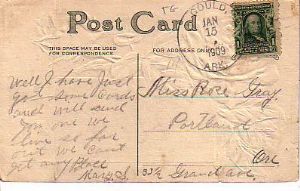 Post Card
THIS SPACE MAY BE USED
FOR CORRESPONDENCE
FOR ADDRESS ONLY
GOULD
JAN
15
1909
ARK.
Well I have Just
got some cards
and will send
you one we
live so far
out we can't
get any place
Miss Rose Gray
Portland
Ore
Grand ave